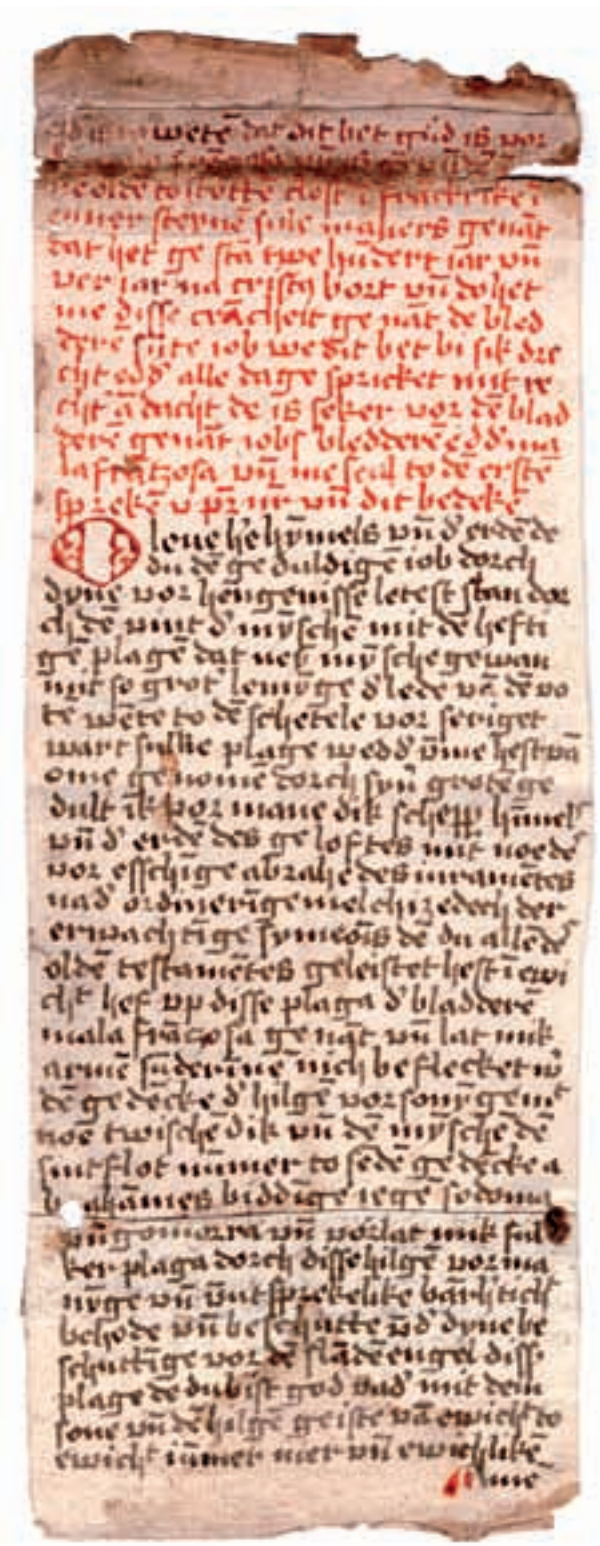 wetē dat dit bet gūd is vor
ne olde to
enner steynē sule maliers genāt
dat het ge stā twe hūdert iar vn̄
ver iar na cristi bort vn̄ do het
me disse crācheit ge nāt de bled
derē sūte iob we dit bet bi sik dre
cht edd' alle dage spricket mit re
cht ā dacht de is seker vor dē blad
derē genāt iobs bledderē edd' ma
la frātzosa vn̄ me scal to dē erstē
sprekē v pr̄ nr̄ vn̄ dit bedekē
O leue h'e hȳmels vn̄ d' erdē de
du dē ge duldigē iob dorch
dynē vor hengenisse letest stan dor
ch dē vint d' mȳschē mit de hefti
gē plagē dat ney mȳsche gewan
mit so grot' lemȳge d' lede vā dē vo
tē wēte to dē schetele vor seriget
wart sulke plage wedd' v̄me hest vā
ome ge nomē dorch syn̄ grotē ge
dult ik vor mane dik schepp' hȳmels
vn̄ d' erdē des ge loftes mit noede
vor esschīge abrahe des
nad' ordinerīge melchizedech der
erwachtīge symeōis dē du alle dē
oldē testamētes geleistet hest ī ewi
cht hef vp disse plaga d' bladderē
mala frāczosa ge nāt vn̄ lat mik
armē sūderīnē nich beflecket w'
dē ge dēcke d' hilgē vorsonȳge mt'
noē twischē dik vn̄ dē mȳschē dē
sintflot nūmer to sēdē ge dēcke a
brahāmes biddīge iegē sodoma
vn̄ gomorra vn̄ vorlat mik sul
ker plaga dorch disse hilgē vorma
nȳge vn̄ v̄utsprekelike bārhtich'
behode vn̄ beschutte vd' dyne be
schuttīge vor dē slādē engel diss'
plage de du bist god vad' mit dem
sone vn̄ dē hilgē geiste vā ewich' to
ewich' iūmer mer vn̄ ewichlikē
Amē